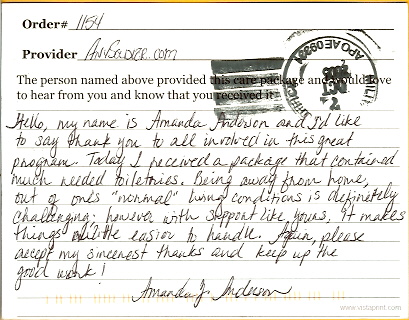 Order# 1154
Provider AnySoldier.com
The person named above provided this care package and would love
to hear from you and know that you received it.
APO AE 093
OCT
Hello, my name is Amanda Anderson and I'd like
to say thank you to all involved in this great
program. Today I received a package that contained
much needed toiletries. Being away from home,
out of one's "normal" living conditions is definitely
challenging; however with support like yours, it makes
things a little easier to handle. Again, please
accept my sincerest thanks and keep up the
good work!
Amanda J. Anderson
www.vistaprint.com